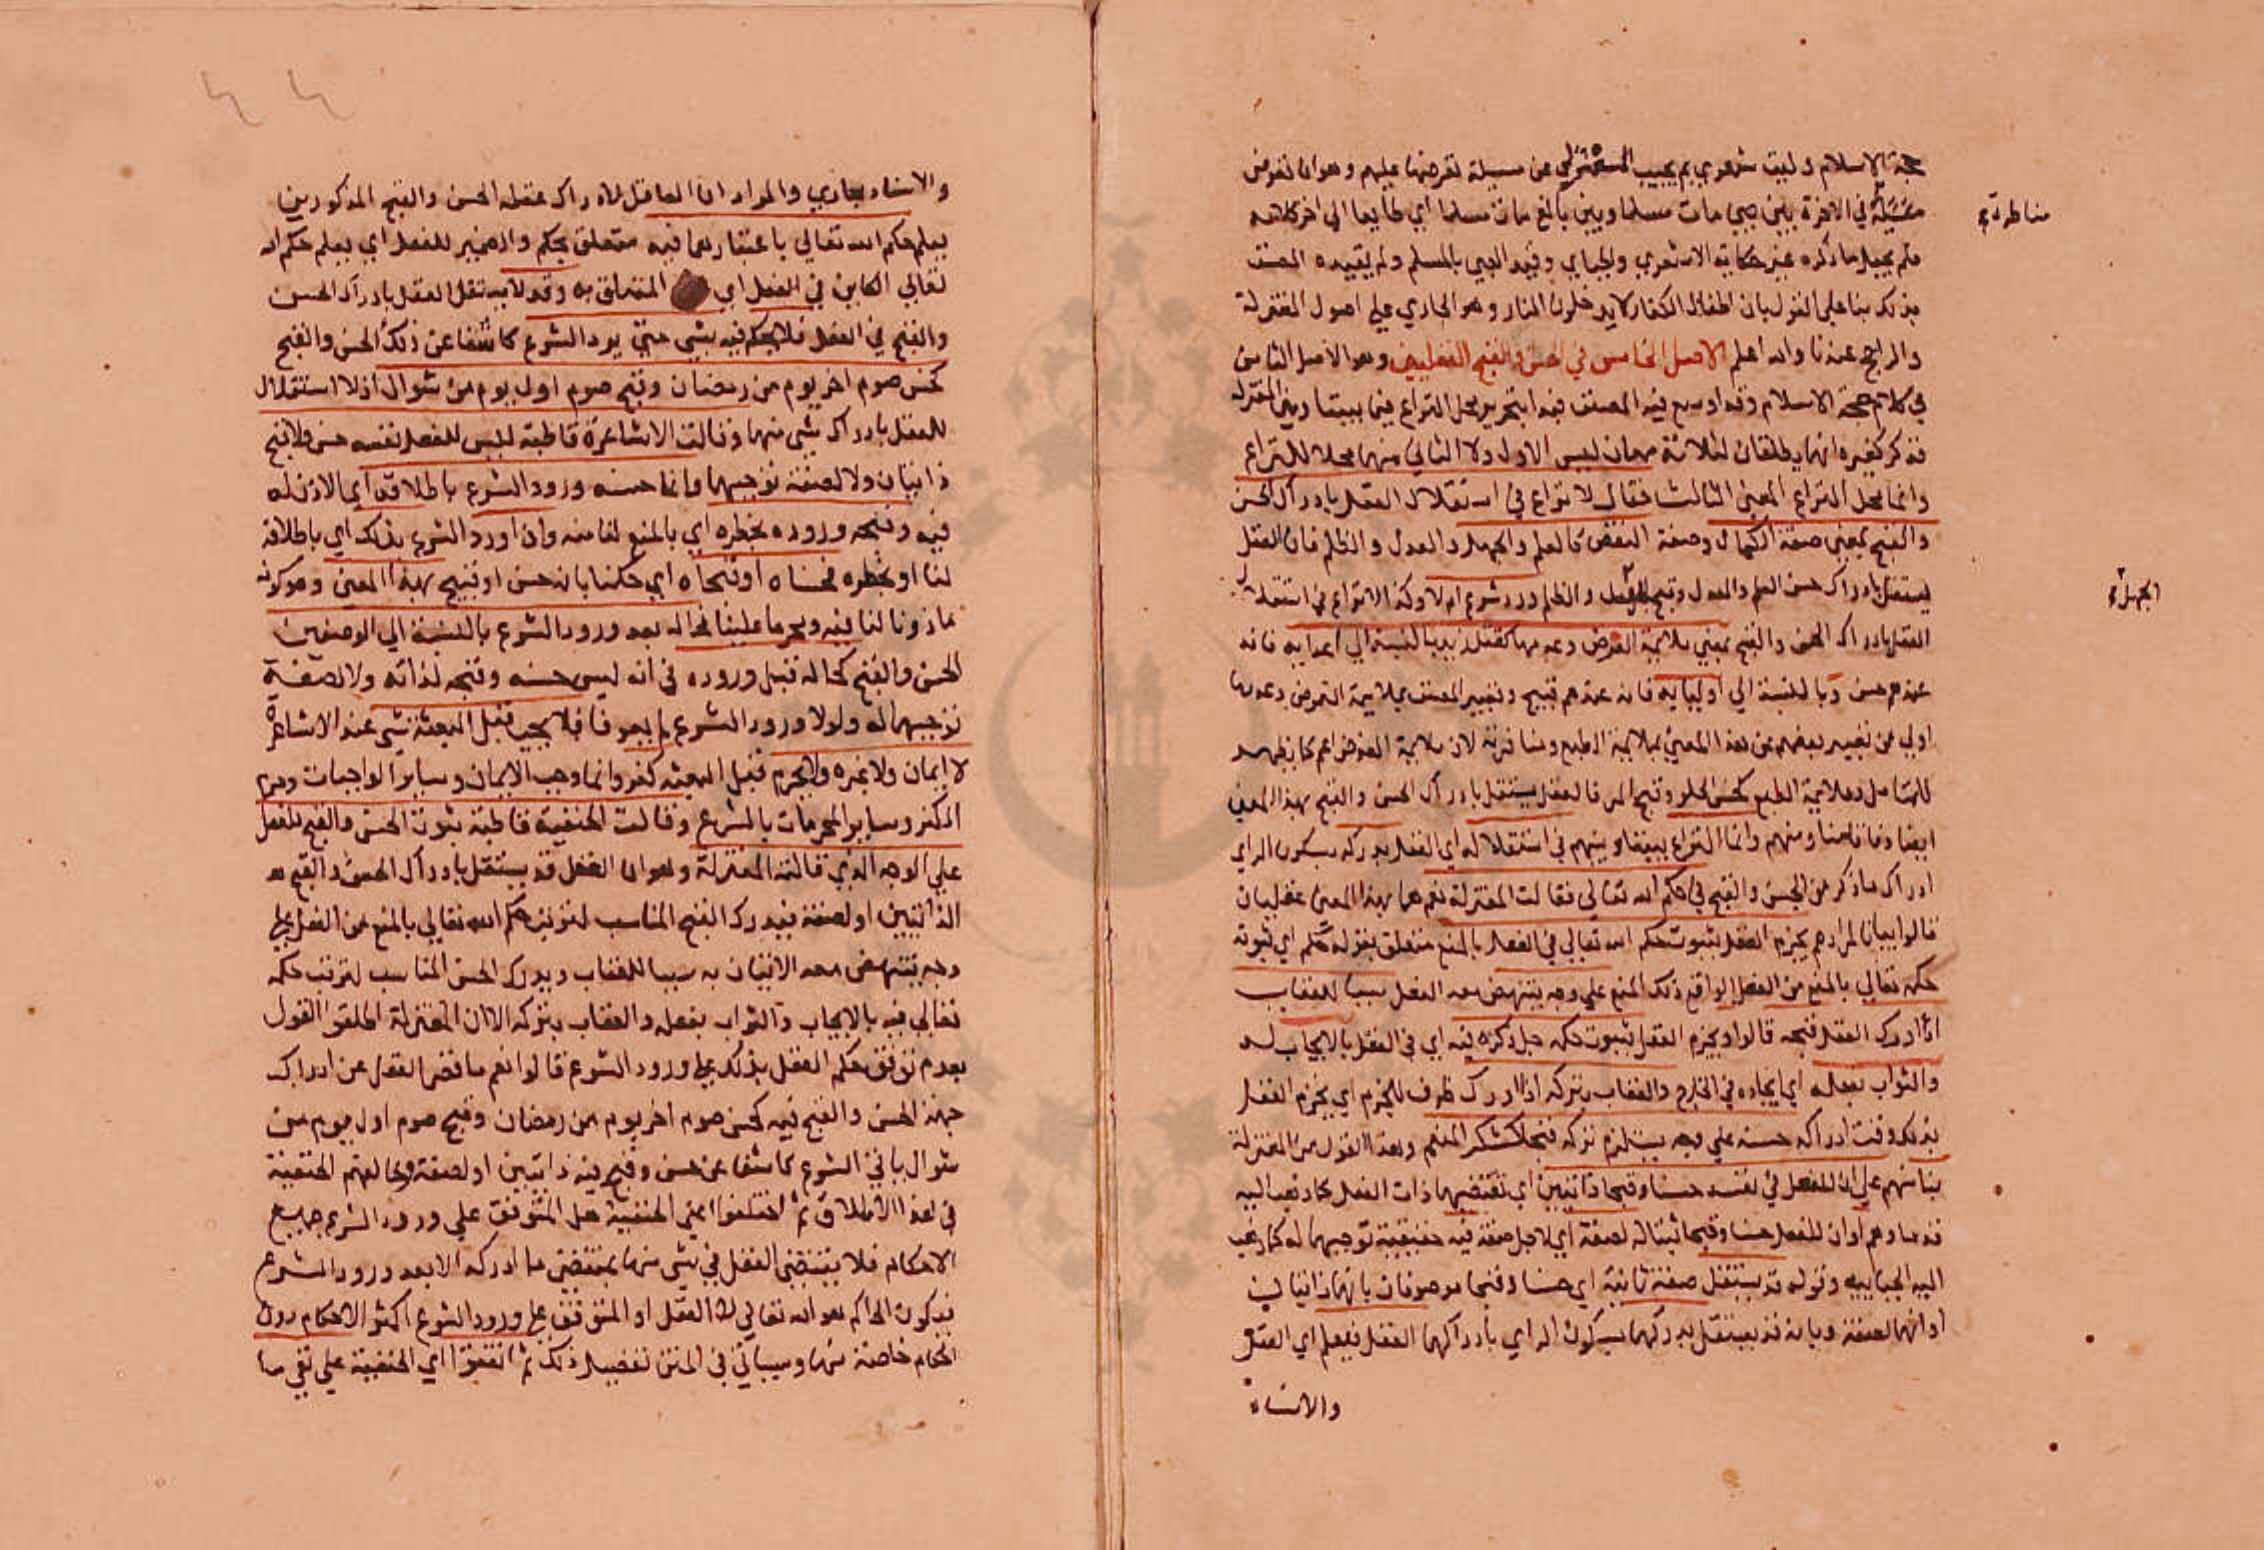 حجة الاسلام وليت شعري بم يجيب المعتزلي عن مسيلة نفرضها عليهم وهو ان نفرض
مسيلة في الاخرة بين صبي مات مسلما وبين بالغ مات مسلما اي طايعا الى اخر كلامه
مناظرة
فلم يجعل ما ذكره عين حكاية الاشعري والجباي وقيد الصبي بالمسلم ولم يقيده المصنف
بذلك بنا على القول بان اطفال الكفار لا يدخلون النار وهو الجاري على اصول المعتزلة
والراجح عندنا والله اعلم الاصل الخامس في الحسن والقبح العقليين وهو الاصل الثامن
في كلام حجة الاسلام وقد اوسع فيه المصنف فبدا بتحرير محل النزاع فيما بيننا وبين المعتزلة
فذكر كغيره انهما يطلقان لثلاثة معان ليس الاول ولا الثاني منها محلا للنزاع
وانما محل النزاع المعنى الثالث فقال لا نزاع في استقلال العقل بادراك الحسن
والقبح بمعنى صفة الكمال وصفة النقص كالعلم والجهل والعدل والظلم فان العقل
يستقل بادراك حسن العلم والعدل وقبح والظلم ورد شرع ام لا وكذا لا نزاع في استقلال
الجهل
العقل بادراك الحسن والقبح بمعنى ملايمة الغرض وعدمها كقتل زيد بالنسبة الى اعدايه فانه
عندهم حسن وبالنسبة الى اوليايه فانه عندهم قبيح وتعبير المصنف بملايمة الغرض وعدمها
اولى من تعبير بعضهم عن هذا المعنى بملايمة الطبع ومنافرته لان ملايمة الغرض اعم كما يظهر
للمتامل وملايمة الطبع كحسن الحلو وقبح المر فالعقل يستقل بادراك الحسن والقبح بهذا المعنى
ايضا وفاقا منا ومنهم وانما النزاع بيننا وبينهم في استقلاله اي العقل بدركه بسكون الراي
ادراك ما ذكر من الحسن والقبح في حكم الله تعالى فقالت المعتزلة نعم هما بهذا المعنى عقليان
قالوا بيانا لمرادهم يجزم العقل بثبوت حكم الله تعالى في الفعل بالمنع متعلق بقوله حكم اي ثبوته
حكمه تعالى بالمنع من الفعل الواقع ذلك المنع على وجه ينتهض معه الفعل سببا للعقاب
اذا ادرك العقل قبحه قالوا ويجزم العقل بثبوت حكمه جل ذكره فيه اي في الفعل بالايجاب له
والثواب بفعله اي ايجاده في الخارج والعقاب بتركه اذا ادرك ظرف ليجزم اي يجزم العقل
بذلك وقت ادراكه حسنه على وجه يستلزم تركه قبحا كشكر المنعم وهذا القول من المعتزلة
بنا منهم على ان للفعل في نفسه حسنا وقبحا ذاتيين اي تقتضيهما ذات الفعل كما ذهب اليه
قدماوهم او ان للفعل حسنا وقبحا ثبتا له لصفة اي لاجل صفة فيه حقيقية توجبهما له كما ذهب
اليه الجباييه وقوله قد يستقل صفة ثانية اي حسنا وقبحا موصوفان بانهما ذاتيان
او انهما لصفة وبانه قد يستقل بدركهما بسكون الراي بادراكهما العقل فيعلم اي العقل
والاسناد
والاسناد مجازي والمراد ان العاقل لادراك عقله الحسن والقبح المذكورين
يعلم حكم الله تعالى باعتبارهما فيه متعلق بحكم والضمير للفعل اي يعلم حكم الله
تعالى الكاين في الفعل اي المتعلق به وقد لا يستقل العقل بادراك الحسن
والقبح في الفعل فلا يحكم فيه بشي حتى يرد الشرع كاشفا عن ذلك الحسن والقبح
كحسن صوم اخر يوم من رمضان وقبح صوم اول يوم من شوال اذ لا استقلال
للعقل بادراك شي منها وقالت الاشاعرة قاطبة ليس للفعل نفسه حسن ولا قبح
ذاتيان ولا لصفة توجبهما وانما حسنه ورود الشرع باطلاقه اي الاذن له
فيه وقبحه وروده بحظره اي بالمنع لنا منه واذا ورد الشرع بذلك اي باطلاقه
لنا او بحظره فحسناه او قبحناه اي حكمنا بانه حسن او قبيح بهذا المعنى وهو كونه
ماذونا لنا فيه ومحرما علينا فحاله بعد ورود الشرع بالنسبة الى الوصفين
الحسن والقبح كحاله قبل وروده في انه ليس حسنه وقبحه لذاته ولا لصفة
توجبهما له ولولا ورود الشرع لم يعرفا فلا يجب قبل البعثة شي عند الاشاعرة
لا ايمان ولا غيره ولا يحرم قبل البعثة كفر وانما وجب الايمان وساير الواجبات وحرم
الكفر وساير المحرمات بالشرع وقالت الحنفية قاطبة بثبوت الحسن والقبح للفعل
على الوجه الذي قالته المعتزلة وهو ان العقل قد يستقل بادراك الحسن والقبح
الذاتيين او لصفة فيدرك القبح المناسب لترتب حكم الله تعالى بالمنع من الفعل على
وجه ينتهض معه الاتيان به سببا للعقاب ويدرك الحسن المناسب لترتب حكمه
تعالى فيه بالايجاب والثواب بفعله والعقاب بتركه الا ان المعتزلة اطلقوا القول
بعدم توقف حكم العقل بذلك على ورود الشرع قالوا نعم ما قصر العقل عن ادراك
جهة الحسن والقبح فيه كحسن صوم اخر يوم من رمضان وقبح صوم اول يوم من
شوال ياتي الشرع كاشفا عن حسن وقبح فيه ذاتيين او لصفة وخالفهم الحنفية
في هذا الاطلاق ثم اختلفوا اعني الحنفية هل المتوقف على ورود الشرع جميع
الاحكام فلا يقتضي العقل في شي منها بمقتضى ما ادركه الا بعد ورود الشرع
فيكون الحاكم هو الله تعالى لا العقل او المتوقف على ورود الشرع اكثر الاحكام دون
احكام خاصة منها وسياتي في المتن تفصيل ذلك ثم اتفقوا اي الحنفية على نفي ما